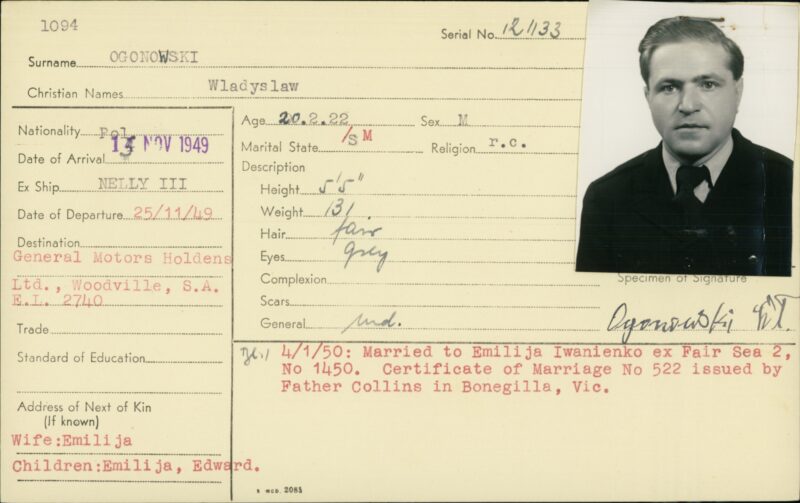 1094
Serial No. 121133
Surname OGONOWSKI
Christian Names Wladyslaw
Nationality Pol
Date of Arrival 15 NOV 1949
Ex Ship NELLY III
Date of Departure 25/11/49
Destination
General Motors Holdens
Ltd., Woodville, S.A.
E.L. 2740
Trade
Standard of Education
Address of Next of Kin
(If known)
Wife:Emilija
Children:Emilija, Edward.
Age 20.2.22 Sex M
Marital State /S M Religion r.c.
Description
Height 5'5"
Weight 131
Hair fair
Eyes grey
Complexion
Scars
General
Specimen of Signature
Ogonowski Wł.
4/1/50: Married to Emilija Iwanienko ex Fair Sea 2,
No 1450. Certificate of Marriage No 522 issued by
Father Collins in Bonegilla, Vic.
2085